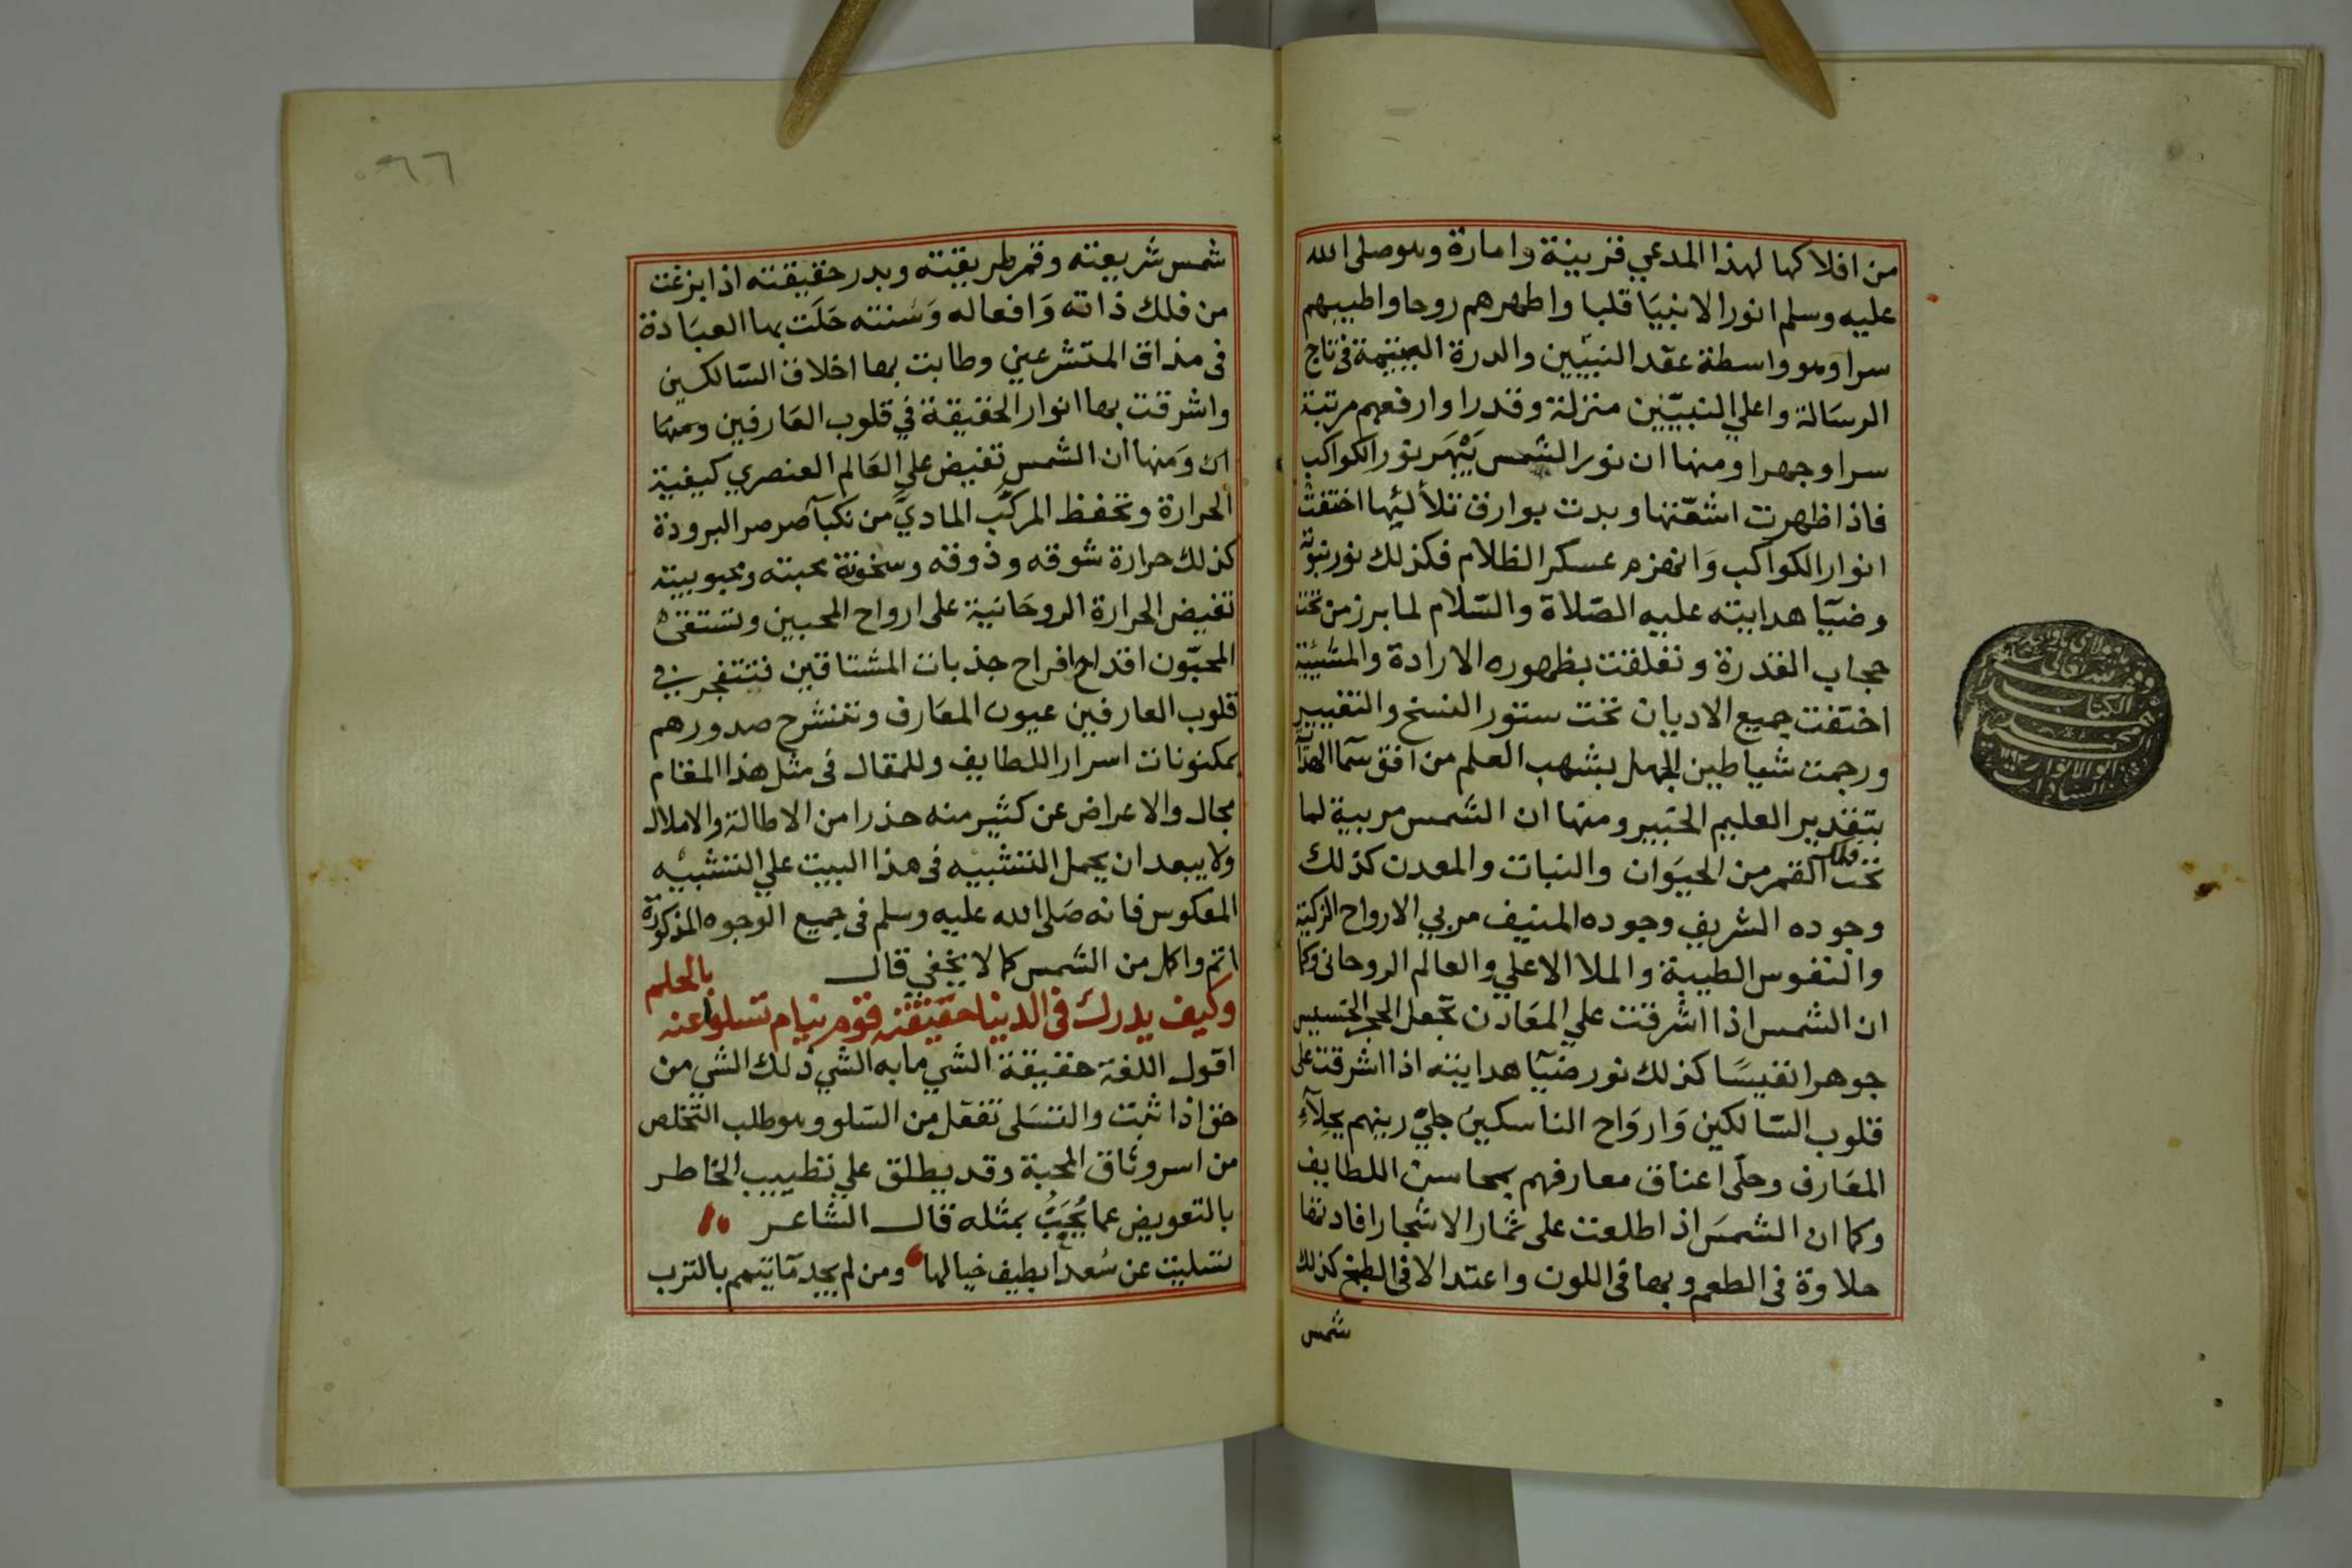 من افلاكها لهذا المدعي قرينة وامارة وهو صلى الله
عليه وسلم انور الانبيا قلبا واطهرهم روحا واطيبهم
سرا وهو واسطة عقد النبيّين والدرة اليتيمة في تاج
الرسالة واعلي النبيّين منزلة وقدرا وارفعهم مرتبة
سرا وجهرا ومنها ان نور الشمس يَبْهَر نور الكواكب
فاذا ظهرت اشعّتها وبدت بوارق تلألئها اختفت
انوار الكواكب وَانهزم عسكر الظلام فكذلك نور نبوّته
وضيآ هدايته عليه الصّلاة والسّلام لما برز من تحت
حجاب القدرة وتعلقت بظهوره الارادة والمشيئة
اختفت جميع الاديان تحت ستور النسخ والتغيير
ورجمت شياطين الجهل بشهب العلم من افق سمآ الهدآ
بتقدير العليم الخبير ومنها ان الشمس مربية لما
تحت فلك القمر من الحيَوان والنبات والمعدن كذلك
وجوده الشريف وجوده المنيف مربي الارواح الزكية
والنفوس الطيبة والملا الاعلي والعالم الروحانى وكما
ان الشمس اذا اشرقت علي المعَادن تجعل الحجر الخسيس
جوهرا نفيسَا كذلك نور ضيآ هدايته اذا اشرقت على
قلوب السّالكين وَاروَاح الناسكين جليْ رينهم بجلآءِ
المعَارف وحلّى اعناق معارفهم بمحاسن اللطايف
وكما ان الشمسَ اذا طلعت على ثمار الاشجار افادتها
حلاوة في الطعم وبها في اللون واعتدالا في الطبخ كذلك
شمس
شمس شريعته وقمر طريقته وبدر حقيقته اذا بزغت
من فلك ذاته وَافعاله وَسُنته حَلَت بها العبَادة
في مذاق المتشرعين وطابت بها اخلاق السّالكين
واشرقت بها انوار الحقيقة في قلوب العَارفين ومنها
ان وَمنها ان الشمس تفيض علي العَالم العنصري كيفية
الحرارة وتحفظ المركّب الماديّ من نكبآ صرصر البرودة
كذلك حرارة شوقه وذوقه وسخونة محبته ومحبوبيته
تفيض الحرارة الروحَانية على ارواح المحبين وتستقى
المحبّون اقداح افراح جذبات المشتاقين فتتفجر في
قلوب العارفين عيون المعَارف وتنشرح صدورهم
بمكنونات اسرار اللطايف وللمقال فى مثل هذا المقام
مجال والاعراض عن كثير منه حذرا من الاطالة والاملال
ولا يبعد ان يحمل التشبيه فى هذا البيت علي التشبيه
المعكوس فانه صَلى الله عليه وسلم فى جميع الوجوه المذكورة
اتم واكمل من الشمس كما لا يخفي قال
وكيف يدرك في الدنيا حقيقته قوم نيام تسلوا عنه بالحلم
اقول اللغة حقيقة الشي ما به الشي ذلك الشي من
حق اذا ثبت والتسَلى تفعّل من السّلو وهو طلب التّخلص
من اسر وثاق المحبة وقد يطلق علي تطييب الخاطر
بالتعويض عما يُحَبُّ بمثله قال الشاعر
تسليت عن سُعدا بطيف خيالها ومن لم يجد مآ تيمم بالترب